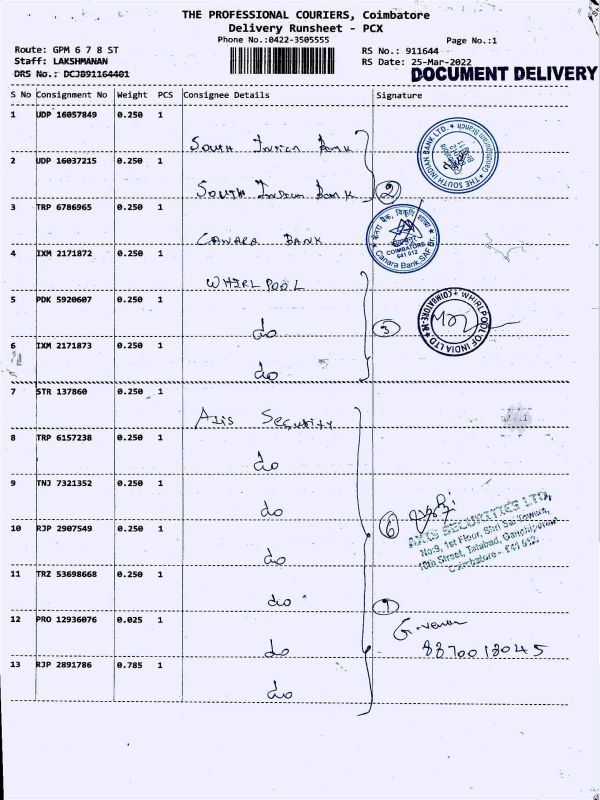 THE PROFESSIONAL COURIERS, Coimbatore
Delivery Runsheet - PCX
Phone No.:0422-3505555
Page No.:1
Route: GPM 6 7 8 ST
RS No.: 911644
Staff: LAKSHMANAN
RS Date: 25-Mar-2022
DRS No.: DCJB91164401
DOCUMENT DELIVERY
S No Consignment No Weight PCS Consignee Details Signature
1 UDP 16057849 0.250 1
South Indian Bank
THE SOUTH INDIAN BANK LTD. Ganapathy Branch
2 UDP 16037215 0.250 1
South Indian Bank 2
3 TRP 6786965 0.250 1
Canara Bank
केनरा बैंक,
COIMBATORE
641 012
Canara Bank, SAF Br.
4 IXM 2171872 0.250 1
WHIRLPOOL
5 PDK 5920607 0.250 1
do 3
WHIRLPOOL OF INDIA LTD COIMBATORE
6 IXM 2171873 0.250 1
do
7 STR 137860 0.250 1
Axis Security
8 TRP 6157238 0.250 1
do
9 TNJ 7321352 0.250 1
do 6
AXIS SECURITIES LTD,
No:9, 1st Floor, Shri Sai Towers,
10th Street, Tatabad, Gandhipuram
Coimbatore - 641 012.
10 RJP 2907549 0.250 1
do
11 TRZ 53698668 0.250 1
do
12 PRO 12936076 0.025 1
do
8870013045
13 RJP 2891786 0.785 1
do